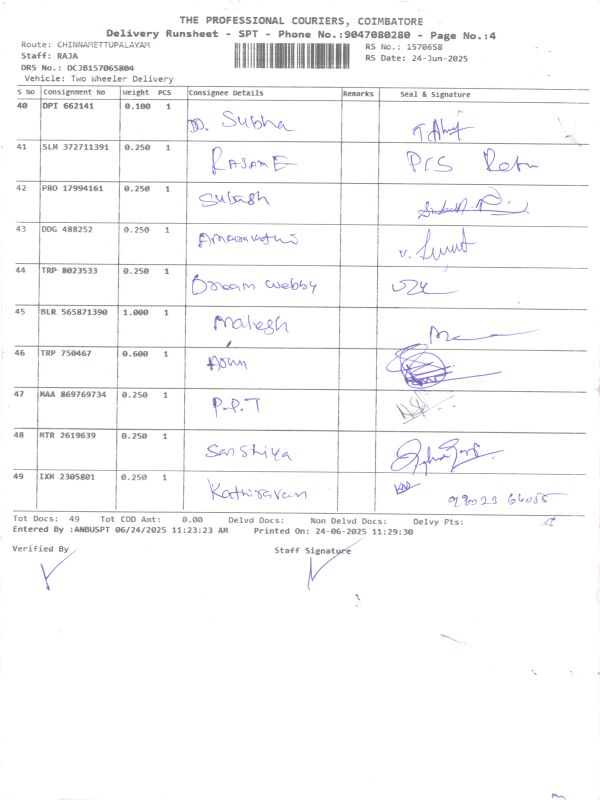 THE PROFESSIONAL COURIERS, COIMBATORE
Delivery Runsheet - SPT - Phone No.:9047080280 - Page No.:4
Route: CHINNAMETTUPALAYAM RS No.: 1570658
Staff: RAJA RS Date: 24-Jun-2025
DRS No.: DCJB157065804
Vehicle: Two Wheeler Delivery
S No Consignment No Weight PCS Consignee Details Remarks Seal & Signature
40 DPI 662141 0.100 1 D. Subha
41 SLM 372711391 0.250 1 RAJAM E
42 PRO 17994161 0.250 1 Subash
43 DDG 488252 0.250 1 Amaravathi
44 TRP 8023533 0.250 1 Dream Webby
45 BLR 565871390 1.000 1 Mahesh
46 TRP 750467 0.600 1
47 MAA 869769734 0.250 1 P.P.T
48 MTR 2619639 0.250 1 Sanshiya
49 IXM 2305801 0.250 1 Kathiravan
Tot Docs: 49 Tot COD Amt: 0.00 Delvd Docs: Non Delvd Docs: Delvy Pts:
Entered By :ANBUSPT 06/24/2025 11:23:23 AM Printed On: 24-06-2025 11:29:30
Verified By Staff Signature